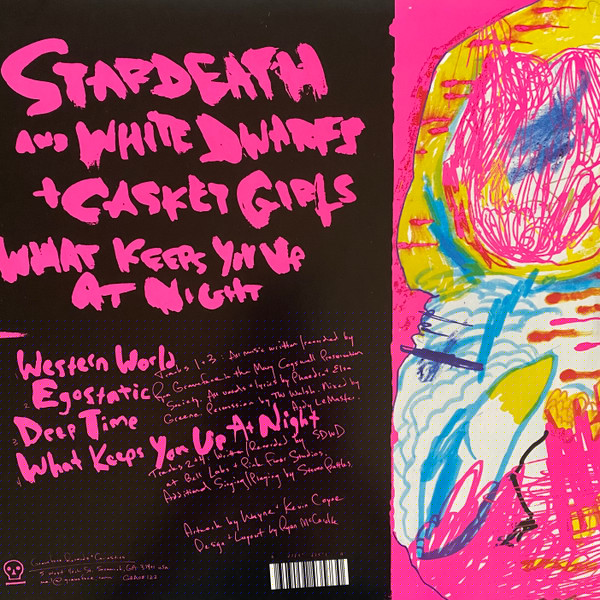 STARDEATH
AND WHITE DWARFS
+ CASKET GIRLS
WHAT KEEPS YOU UP
AT NIGHT
1 Western World
2 Egostatic
3 Deep Time
4 What Keeps You Up At Night
Tracks 1+3: All music written/recorded by
Ryan Graveface with the Marry Cogswell Preservation
Society. All words + lyrics by Phaedra + Elsa
Greene. Percussion by TW Walsh. Mixed by
Andy LeMaster.
Tracks 2+4: Written/Recorded by SDWD
at Bell Labs + Pink Floor Studios.
Additional Singing/Playing by
Artwork by Wayne + Kevin Coyne
Design + Layout by Ryan McCardle
Graveface Records + Curiosities
5 West York St. Savannah, GA 31401 USA
mail@graveface.com